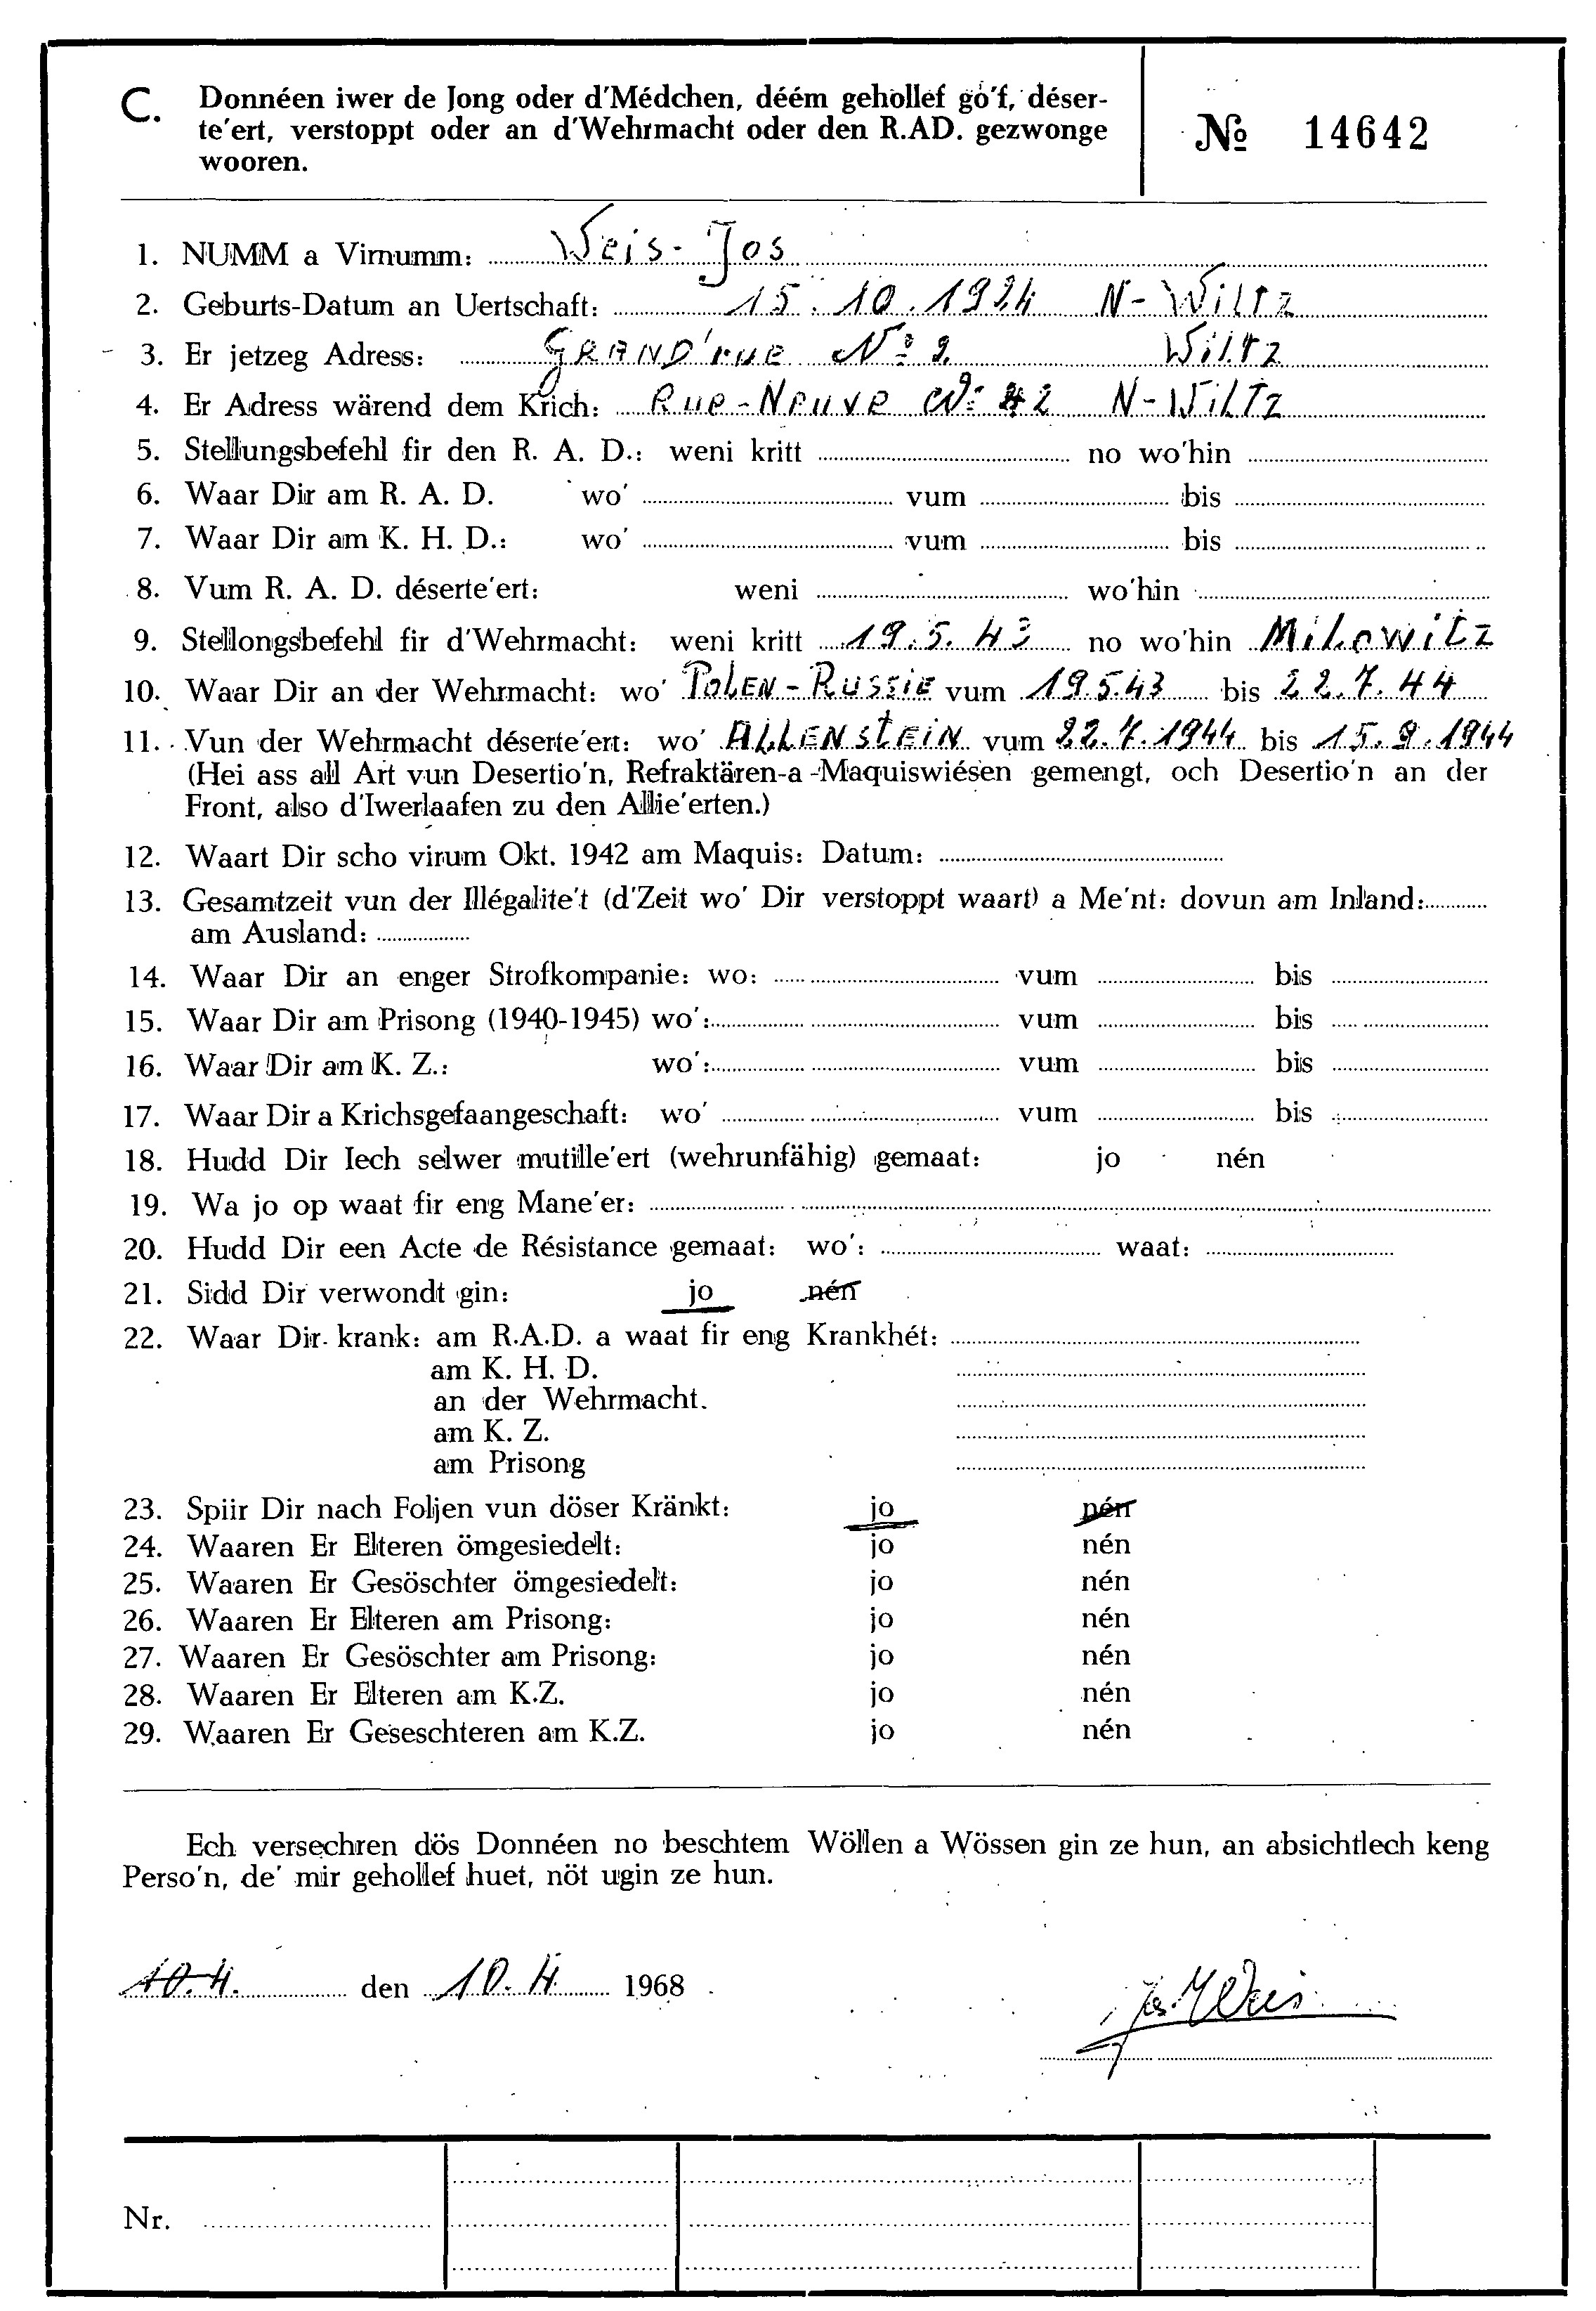 C. Donnéen iwer de Jong oder d'Médchen, déém gehollef gö'f, déser-
te'ert, verstoppt oder an d'Wehrmacht oder den R.AD. gezwonge
wooren.
№ 14642
1. NUMM a Virnumm: Weis - Jos
2. Geburts-Datum an Uertschaft: 15.10.1924 N-Wiltz
3. Er jetzeg Adress: GRAND'rue No 2 Wiltz
4. Er Adress wärend dem Krich: Rue-Neuve No 42 N-Wiltz
5. Stellungsbefehl fir den R. A. D.: weni kritt no wo'hin
6. Waar Dir am R. A. D. wo' vum bis
7. Waar Dir am K. H. D.: wo' vum bis
8. Vum R. A. D. déserte'ert: weni wo'hin
9. Stellongsbefehl fir d'Wehrmacht: weni kritt 19.5.43 no wo'hin Milowitz
10. Waar Dir an der Wehrmacht: wo' POLEN-RUSSIE vum 19.5.43 bis 22.7.44
11. Vun der Wehrmacht déserte'ert: wo' ALLENSTEIN vum 22.7.1944 bis 15.9.1944
(Hei ass all Art vun Desertio'n, Refraktären-a-Maquiswiésen gemengt, och Desertio'n an der
Front, also d'Iwerlaafen zu den Allie'erten.)
12. Waart Dir scho virum Okt. 1942 am Maquis: Datum:
13. Gesamtzeit vun der Illégalite't (d'Zeit wo' Dir verstoppt waart) a Me'nt: dovun am Inland:
am Ausland:
14. Waar Dir an enger Strofkompanie: wo: vum bis
15. Waar Dir am Prisong (1940-1945) wo': vum bis
16. Waar Dir am K. Z.: wo': vum bis
17. Waar Dir a Krichsgefaangeschaft: wo' vum bis
18. Hudd Dir Iech selwer mutille'ert (wehrunfähig) gemaat: jo nén
19. Wa jo op waat fir eng Mane'er:
20. Hudd Dir een Acte de Résistance gemaat: wo': waat:
21. Sidd Dir verwondt gin: jo nén
22. Waar Dir krank: am R.A.D. a waat fir eng Krankhét:
am K. H. D.
an der Wehrmacht.
am K. Z.
am Prisong
23. Spiir Dir nach Foljen vun döser Kränkt: jo nén
24. Waaren Er Elteren ömgesiedelt: jo nén
25. Waaren Er Gesöschter ömgesiedelt: jo nén
26. Waaren Er Elteren am Prisong: jo nén
27. Waaren Er Gesöschter am Prisong: jo nén
28. Waaren Er Elteren am K.Z. jo nén
29. Waaren Er Geseschteren am K.Z. jo nén
Ech versechren dös Donnéen no beschtem Wöllen a Wössen gin ze hun, an absichtlech keng
Perso'n, de' mir gehollef huet, nöt ugin ze hun.
10.4. den 10.4. 1968
Jos Weis
Nr.